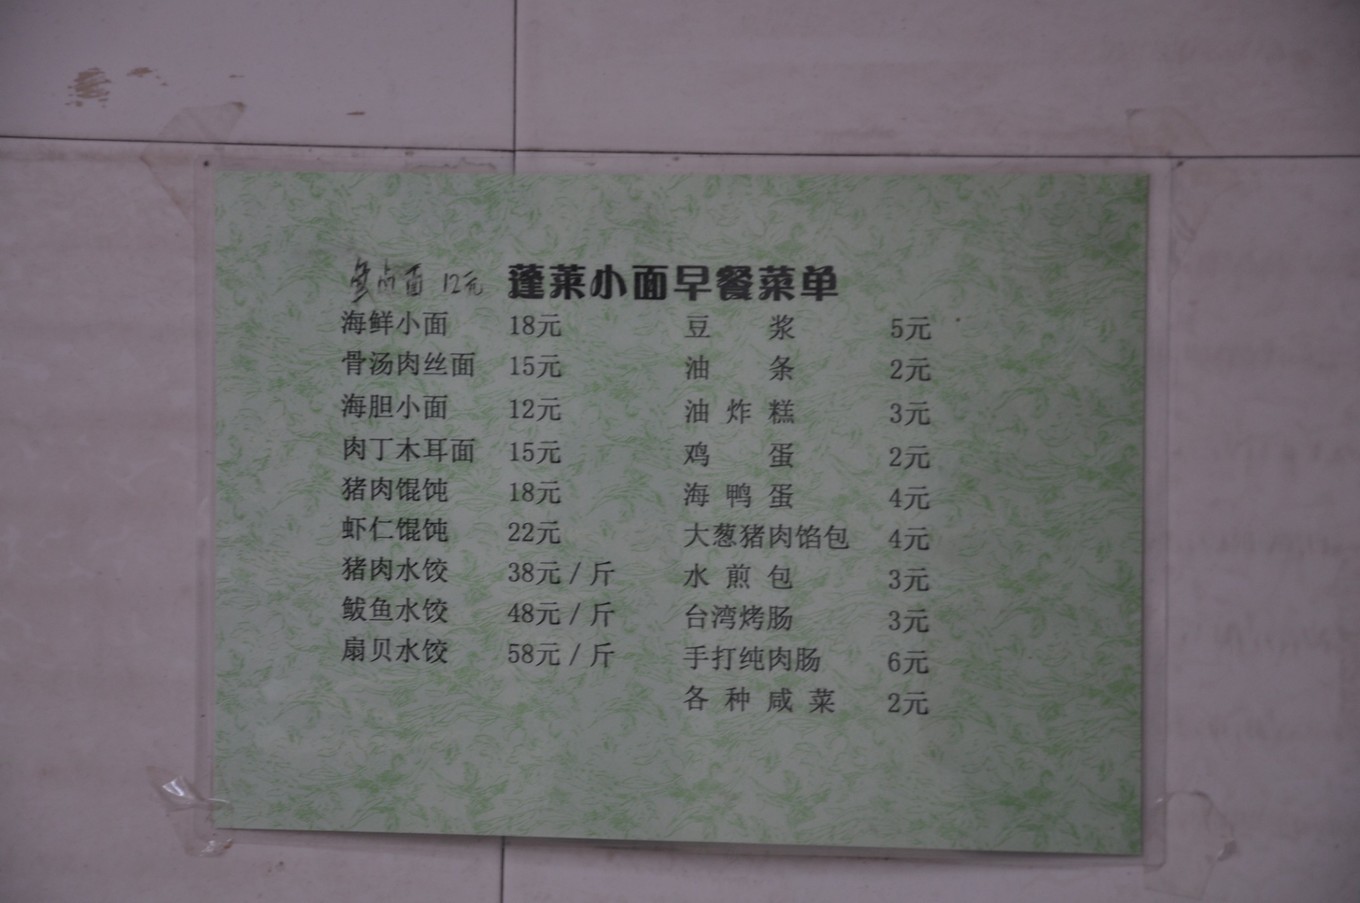 面 12元 蓬莱小面早餐菜单
海鲜小面 18元 豆浆 5元
骨汤肉丝面 15元 油条 2元
海胆小面 12元 油炸糕 3元
肉丁木耳面 15元 鸡蛋 2元
猪肉馄饨 18元 海鸭蛋 4元
虾仁馄饨 22元 大葱猪肉馅包 4元
猪肉水饺 38元/斤 水煎包 3元
鲅鱼水饺 48元/斤 台湾烤肠 3元
扇贝水饺 58元/斤 手打纯肉肠 6元
各种咸菜 2元